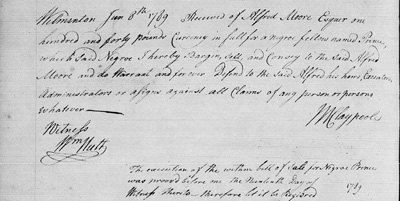 Wilmington Jun 8th 1789 Received of Alfred Moore Esqur one
hundred and forty pounds Currency in full for a negroe fellow named Prince,
which Said Negroe I hereby Bargin, Sell, and Convey to the Said Alfred
Moore and do Warrant and forever Defend to the Said Alfred his heirs, Executors
Administrators or assigns against all Claims of any person or persons
whatever
Witness
Wm Hutt
The execution of the within bill of Sale for Negroe Prince
was proved before me the Day of 1789
Witness therefore let it be Registered